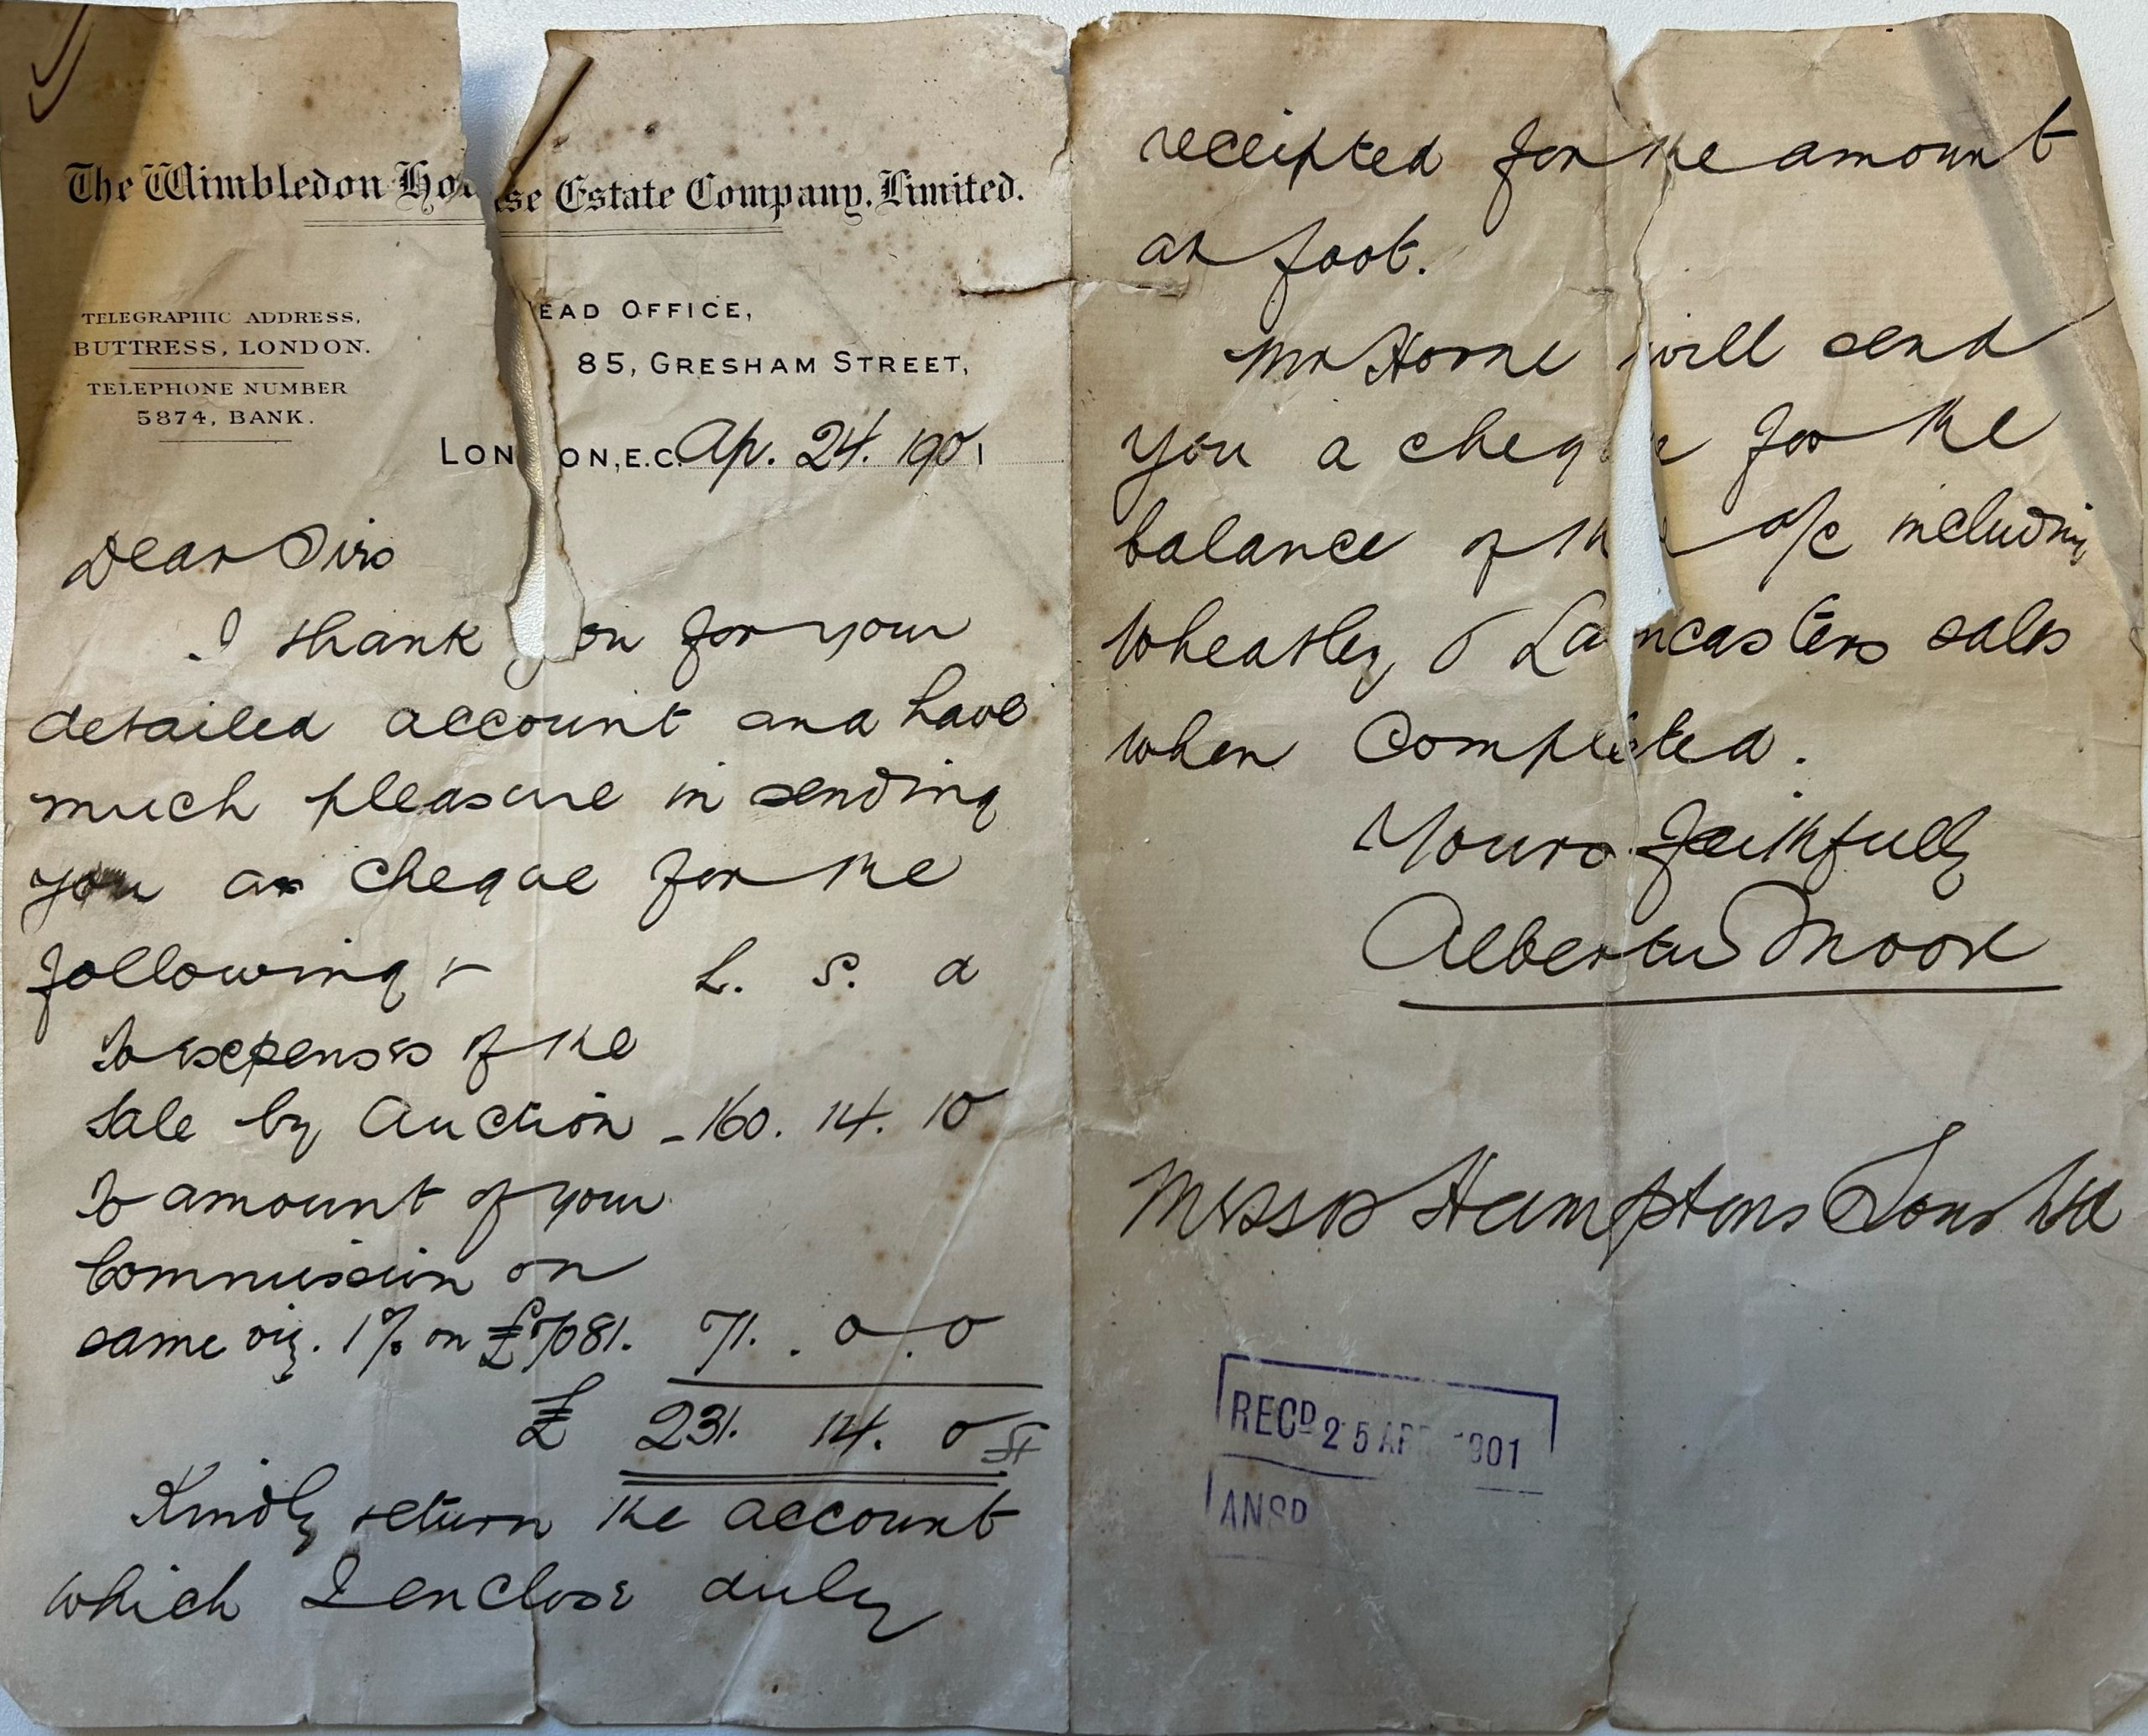 The Wimbledon House Estate Company, Limited.
TELEGRAPHIC ADDRESS,
BUTTRESS, LONDON.
TELEPHONE NUMBER
5874, BANK.
EAD OFFICE,
85, GRESHAM STREET,
LONDON, E.C. Ap. 24. 1901
Dear Sirs
I thank you for your
detailed account and have
much pleasure in sending
you a cheque for the
following :- L. s. d
To expenses of the
Sale by Auction - 160. 14. 10
To amount of your
Commission on
same viz. 1% on £7081. 71. 0. 0
£ 231. 14. 0
Kindly return the account
which I enclose duly
receipted for the amount
at foot.
Mr Horne will send
you a cheque for the
balance of the a/c including
Wheatley & Lancasters sales
when Completed.
Yours faithfully
Messrs Hamptons Sons Ltd
RECD 25 APR 1901
ANSD